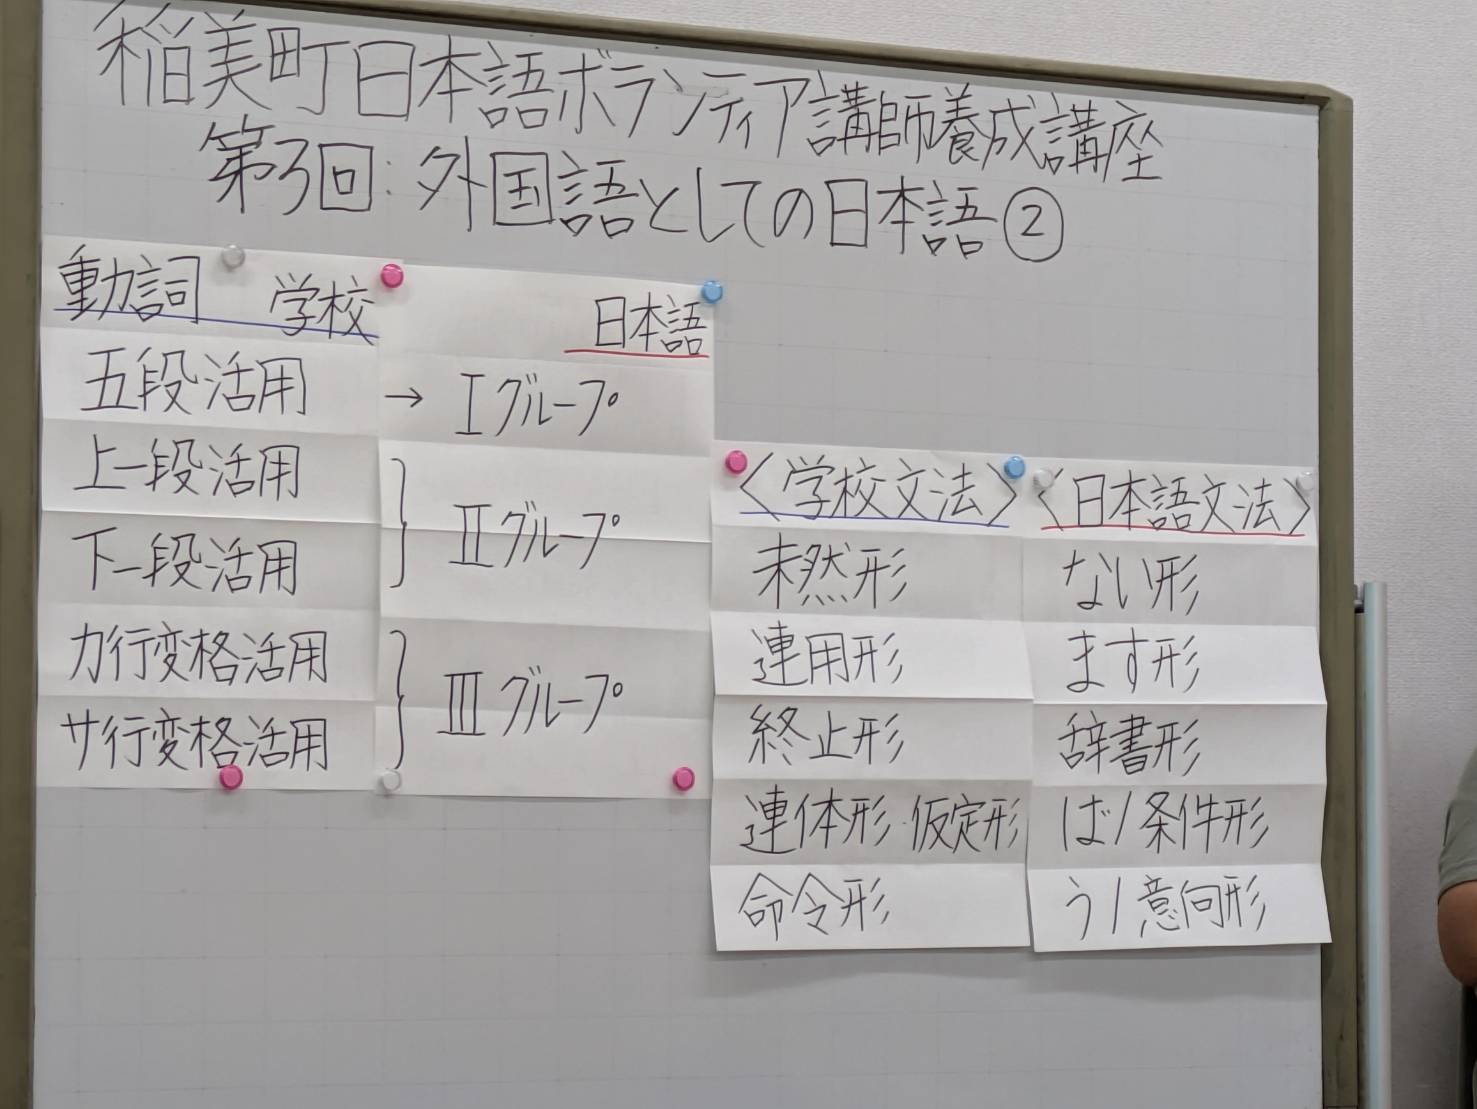 稲美町日本語ボランティア講師養成講座
第3回:外国語としての日本語②
動詞 学校
五段活用
上一段活用
下一段活用
カ行変格活用
サ行変格活用
日本語
→ Ⅰグループ
} Ⅱグループ
} Ⅲグループ
〈学校文法〉
未然形
連用形
終止形
連体形・仮定形
命令形
〈日本語文法〉
ない形
ます形
辞書形
ば/条件形
う/意向形